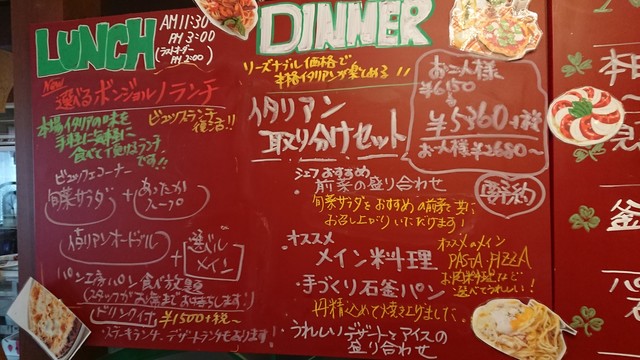 LUNCH
AM11:30
PM3:00
(ラストオーダー
PM2:00)
New
選べるボンジョルノランチ
本場イタリアの味を
手軽に気軽に
食べて頂けるランチ
です!!
ビュッフェランチ
復活!!
ビュッフェコーナー
旬菜サラダ + あったか
スープ
イタリアンオードブル + 選べる
メイン
パン工房パン食べ放題
(スタッフがお席までお持ちします!)
ドリンク付 ¥1500+税〜
・ステーキランチ、デザートランチもあります!
DINNER
リーズナブル価格で
本格イタリアンが楽しめる!!
イタリアン
取り分けセット
お二人様
¥6150
¥5360+税
お一人様¥2680〜
・シェフおすすめ
前菜の盛り合わせ
要予約
旬菜サラダとおすすめの前菜と共に
お召し上がりいただけます!
・オススメ
メイン料理
オススメのメイン
PASTA・PIZZA
お肉料理など
選べてうれしい!
・手づくり石釜パン
丹精込めて焼き上りました。
・うれしいデザートとアイスの
盛り合わせ
本日
釜
パ
石